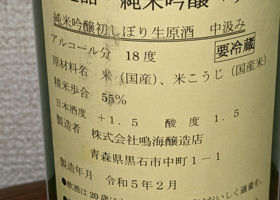 純米吟醸
純米吟醸初しぼり生原酒 中汲み
アルコール分 18度
要冷蔵
原材料名 米(国産)、米こうじ(国産米)
精米歩合 55%
日本酒度 +1.5 酸度 1.5
製造者 株式会社鳴海醸造店
青森県黒石市中町1-1
製造年月 令和5年2月
●飲酒は20歳に